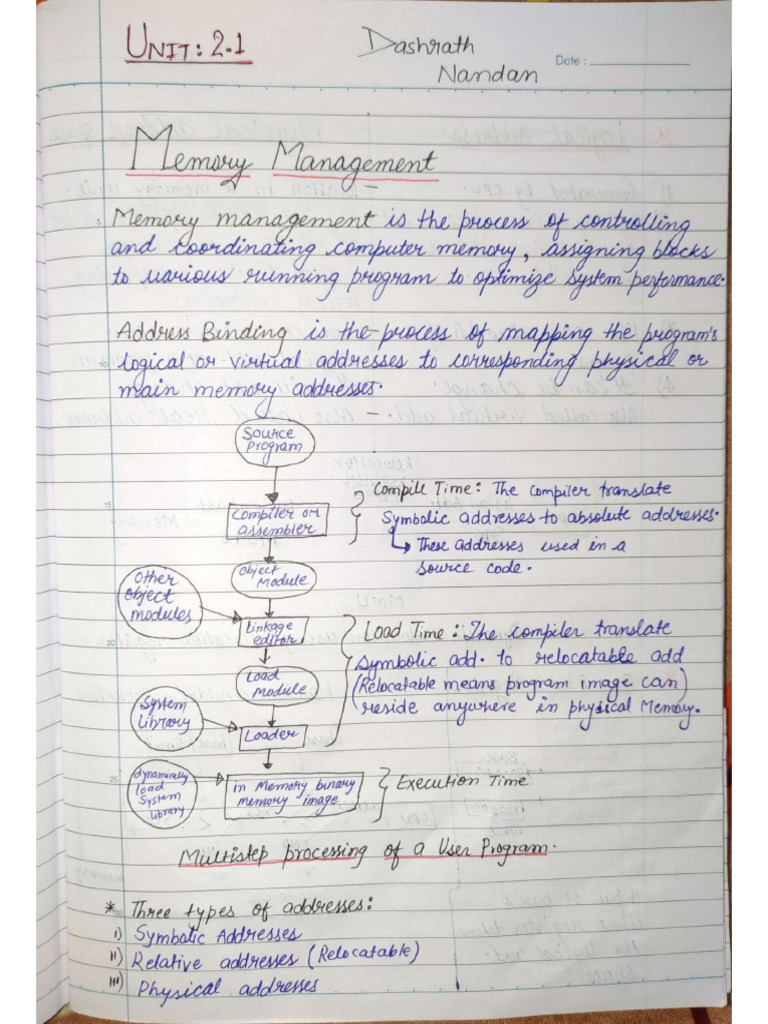 UNIT: 2.1
Dashrath
Nandan
Date:
Memory Management
Memory management is the process of controlling
and coordinating computer memory, assigning blocks
to various running program to optimize system performance.
Address Binding is the process of mapping the program's
logical or virtual addresses to corresponding physical or
main memory addresses.
Source
Program
Compiler or
assembler
Compile Time: The compiler translate
Symbolic addresses to absolute addresses.
These addresses used in a
source code.
Object
Module
Other
Object
modules
Linkage
editor
Load Time: The compiler translate
Symbolic add. to relocatable add
(Relocatable means program image can)
reside anywhere in physical Memory.
Load
module
System
Library
Loader
dynamically
load
System
library
in Memory binary
memory image
Execution Time
Multistep processing of a User Program.
* Three types of addresses:
i) Symbolic Addresses
ii) Relative addresses (Relocatable)
iii) Physical addresses